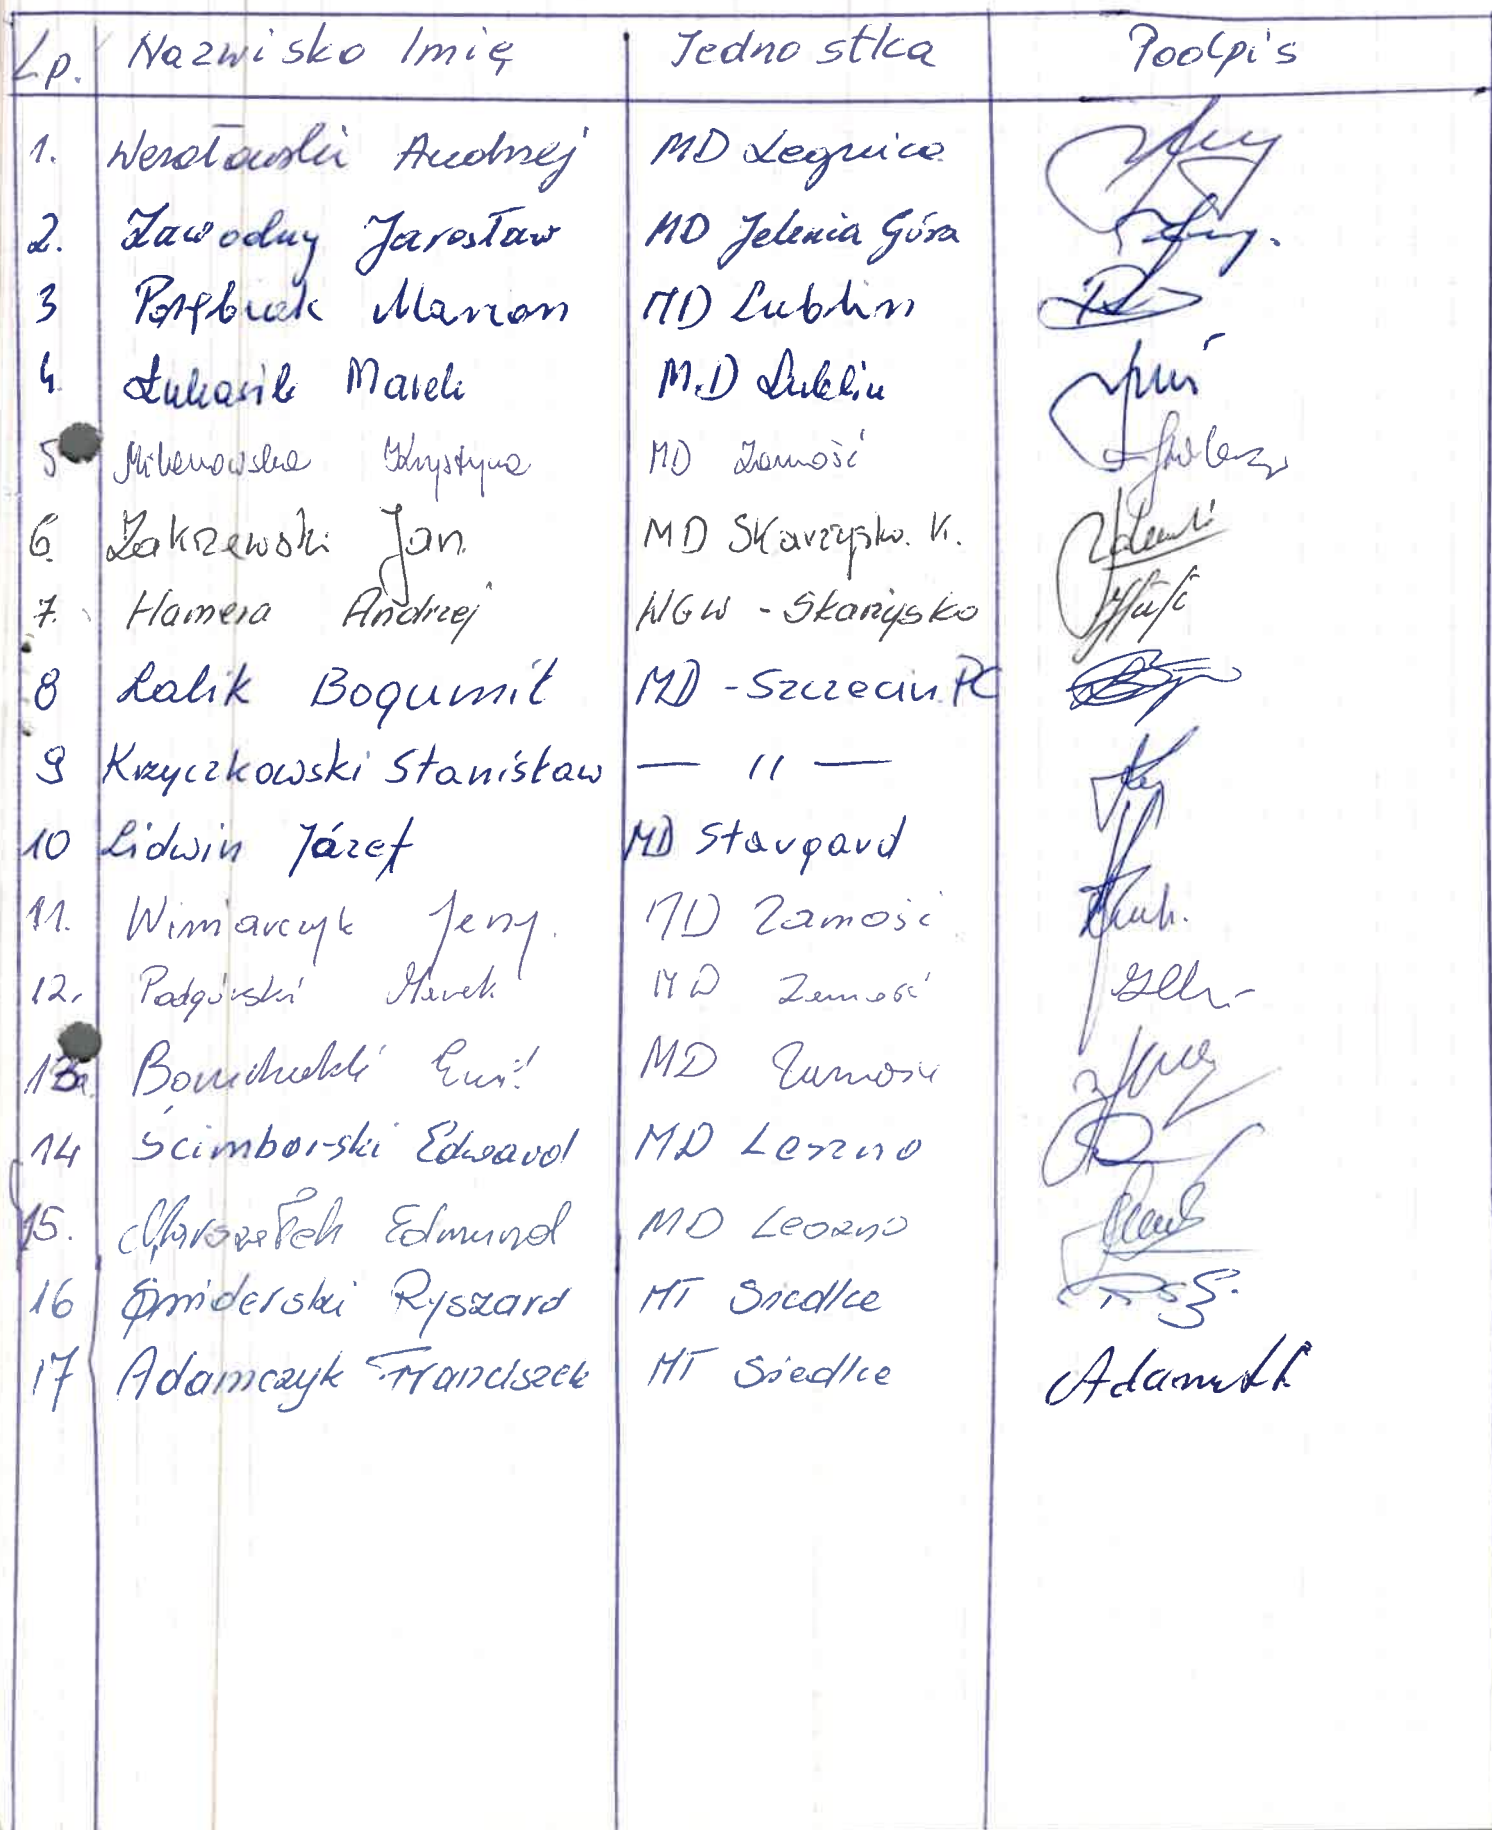 Lp. Nazwisko Imię Jednostka Podpis
1. Andrzej MD Legnica
2. Zawodny Jarosław MD Jelenia Góra
3 Marian MD Lublin
4. Łukasik Marek M.D Lublin
5 Krystyna MD Zamość
6. Zakrzewski Jan MD Skarżysko. K.
7. Hamera Andrzej WGW - Skarżysko
8 Lalik Bogumił MD - Szczecin PC
9 Krzyczkowski Stanisław — 11 —
10 Lidwin Józef MD Stargard
11. Winiarczyk Jerzy. MD Zamość
12. Podgórski Marek MD Zamość
13a. MD Zamość
14 Ścimborski Edward MD Leszno
15. Marszałek Edmund MD Leszno
16 Śmiderski Ryszard MT Siedlce
17 Adamczyk Franciszek MT Siedlce